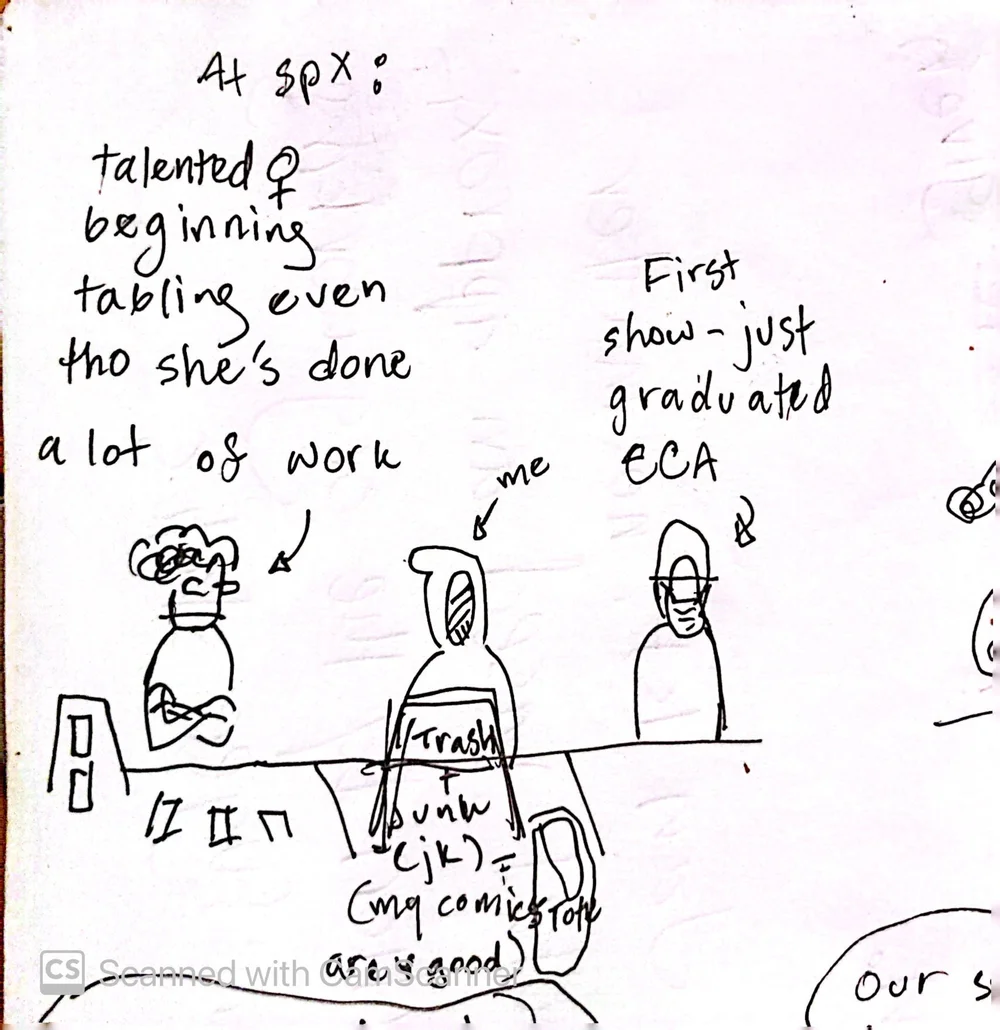 At spx:
talented ♀
beginning
tabling even
tho she's done
a lot of work
me
First
show - just
graduated
ECA
Trash
+
junk
(jk) -
(my comics
are good)
Tote
Our s
CS Scanned with CamScanner